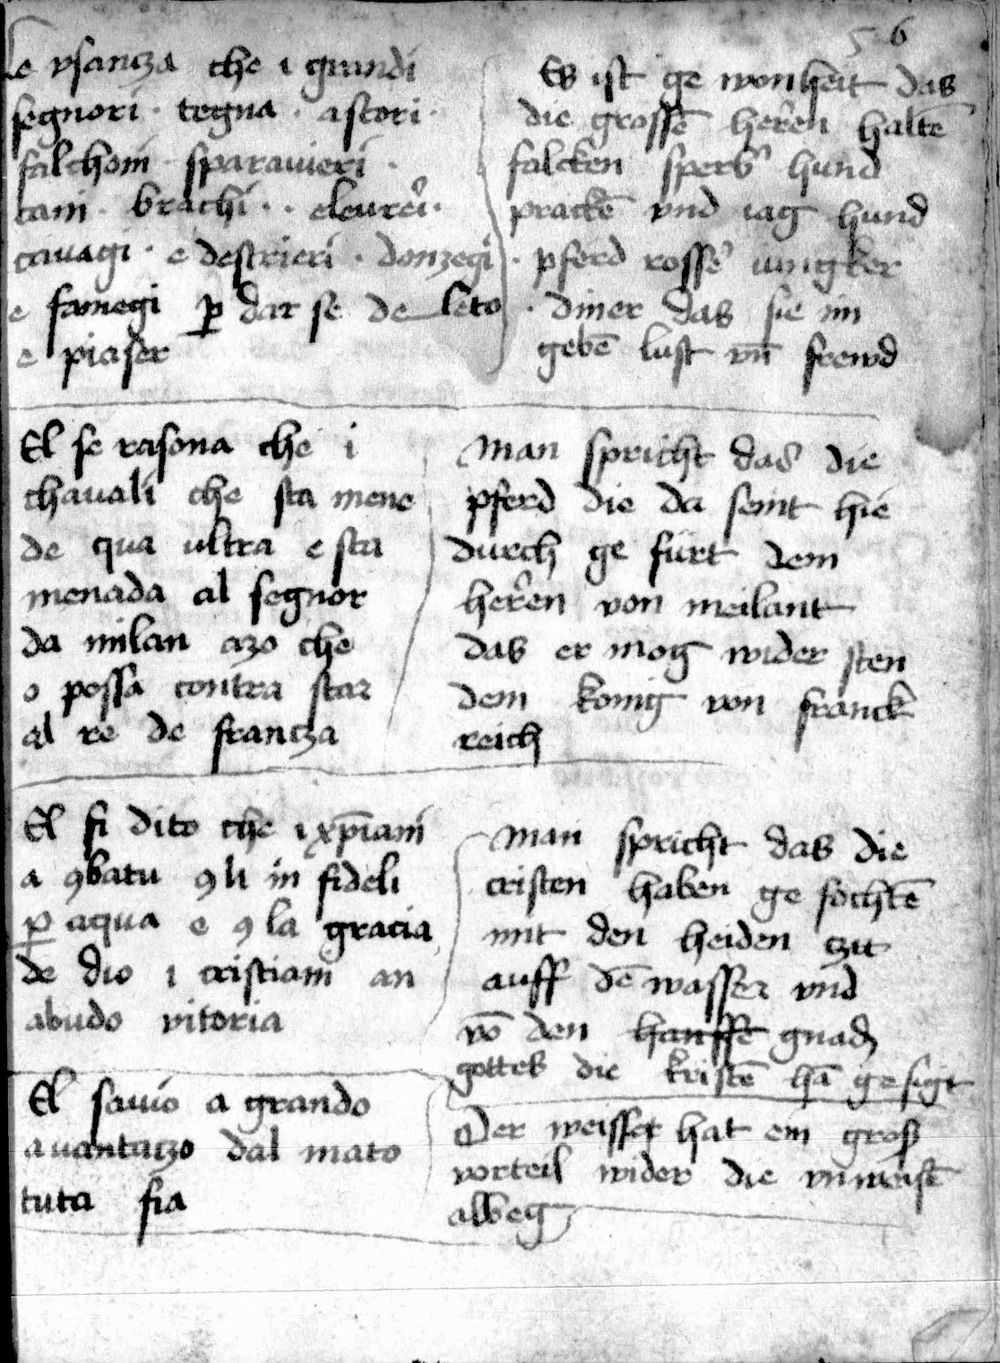 56
le vsantza che i grandi
segnori · tegna · astori ·
falchoni · sparauieri ·
cani · brachi · · eleureri ·
cauagi · e destrieri · donzegi ·
e famegi ꝑ dar se de leto
e piaser
Es ist ge wonheit das
die grossē heren haltē
falcken sperber hund
prackē vnd iag hund
pferd rosser iungker
· diner das sie im
gebē lust vn̄ frewd
El se rasona che i
chauali che sta mene
de qua ultra e sta
menada al segnor
da milan azo che
o possa contra star
al re de frantza
Man spricht das die
pferd die da seint hie
durch ge furt dem
heren von meilant
das er mog wider sten
dem konig von franck
reich
El si dito che i xp̄iani
a ꝯbatu ꝯ li in fideli
ꝑ aqua e ꝯ la gracia
de dio i cristiani an
abudo vitoria
Man spricht das die
cristen haben ge fochtē
mit den heiden tzu
auff dē wasser vnd
vō den hanffē gnad
gottes die kristē hā ge sigt
El sauio a grando
auantazo dal mato
tuta fia
Der weisser hat ein groß
vorteil wider die vnweisē
albeg